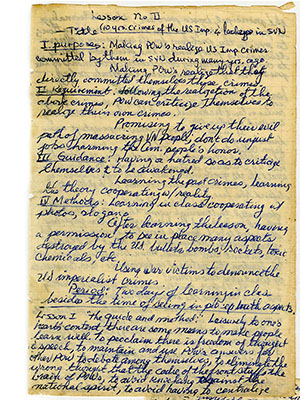 Lesson No II
Title (10 yrs crimes of the US Imp. & lackeys in SVN
I purposes: Making POWs realize US Imp. crimes
committed by them in SVN during many yrs. ago
Making POWs realize that they
directly committed themselves those crimes
II Requirement: following the realization of the
above crimes, POWs can criticize themselves to
realize their own crimes.
Promising to give up their evil
path of massacring VN people, don't do unjust
jobs harming the Am. people's honor.
III Guidance: Having a hatred so as to critize
themselves & to be awakened.
Learning the past crimes, learning
its theory cooperating w/ reality
IV Methods: Learning in class cooperating w/
photos,
After learning the lesson, having
a permission to see in place many aspects
destroyed by the US bullets, bombs, rockets, toxic
chemicals, etc.
Using war victims to denounce the
US imperialist crimes
Period: Two days of learning in class
besides the time of seeing in places truth aspects.
Lesson I The guide and method: Leaning to one's
content there are some means to make people
learn well. To proclaim there is freedom of thought
& speech, to maintain and use POWs answers for
other POWs to debate among themselves, to eliminate the
wrong thought that the cadre of the front study the
of POWs, to avoid against the
national spirit, to avoid having to contradict